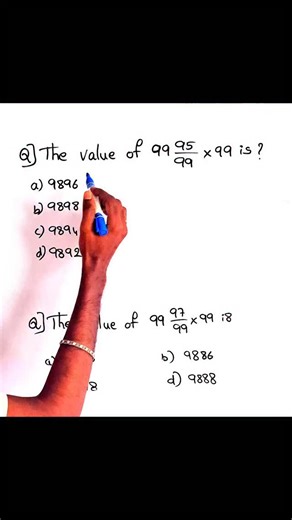 Q] The value of 99 95/99 × 99 is ?
a) 9896
b) 9898
c) 9894
d) 9892
Q] The value of 99 97/99 × 99 is
b) 9886
d) 9888